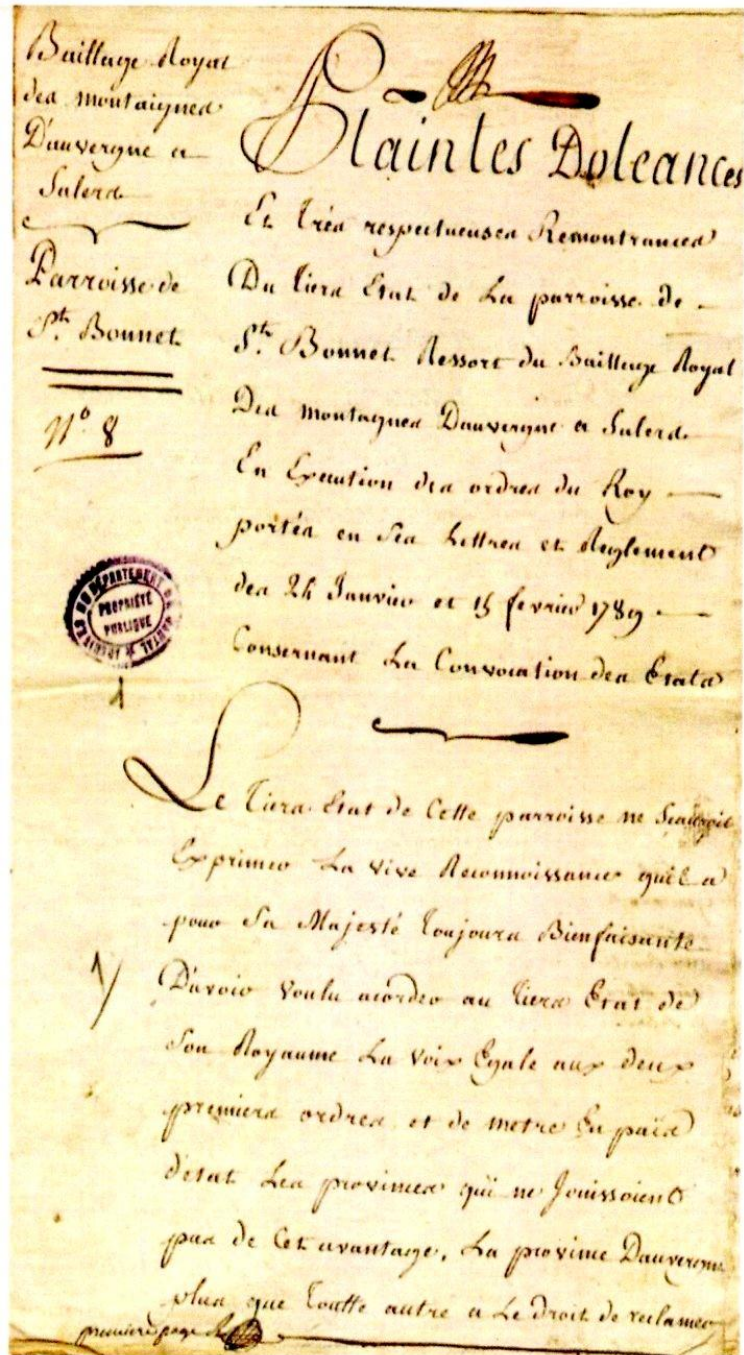 Baillage Royal
des montaignes
D'auvergne a
Salers
Parroisse de
St. Bonnet
N° 8
ARCHIVES DU DÉPARTEMENT DU CANTAL
PROPRIÉTÉ
PUBLIQUE
1
Plaintes Doleances
Et très respectueuses Remontrances
Du tiers Etat de La parroisse de
St. Bonnet Ressort du Baillage Royal
Des montagnes Dauvergne a Salers
En Execution des ordres du Roy
portés en Ses Lettres et Reglement
des 24 Janvier et 15 fevrier 1789
Consernant La Convocation des Etats
Le tiers Etat de Cette parroisse ne Scauroit
Exprimer La vive Reconnoissance quil a
pour Sa Majesté toujours Bienfaisante
1/ D'avoir voulu acorder au tiers Etat de
Son Royaume La voix Egale aux deux
premiers ordres et de metre En païs
d'etat Les provinces qui ne Jouissoient
pas de Cet avantage, La province Dauvergne
plus que toutte autre a Le droit de reclamer
premiere page